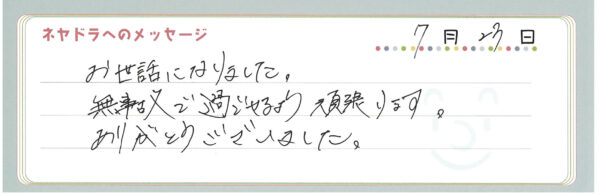 ネヤドラへのメッセージ
7月23日
お世話になりました。
無事故で過ごせるよう頑張ります。
ありがとうございました。